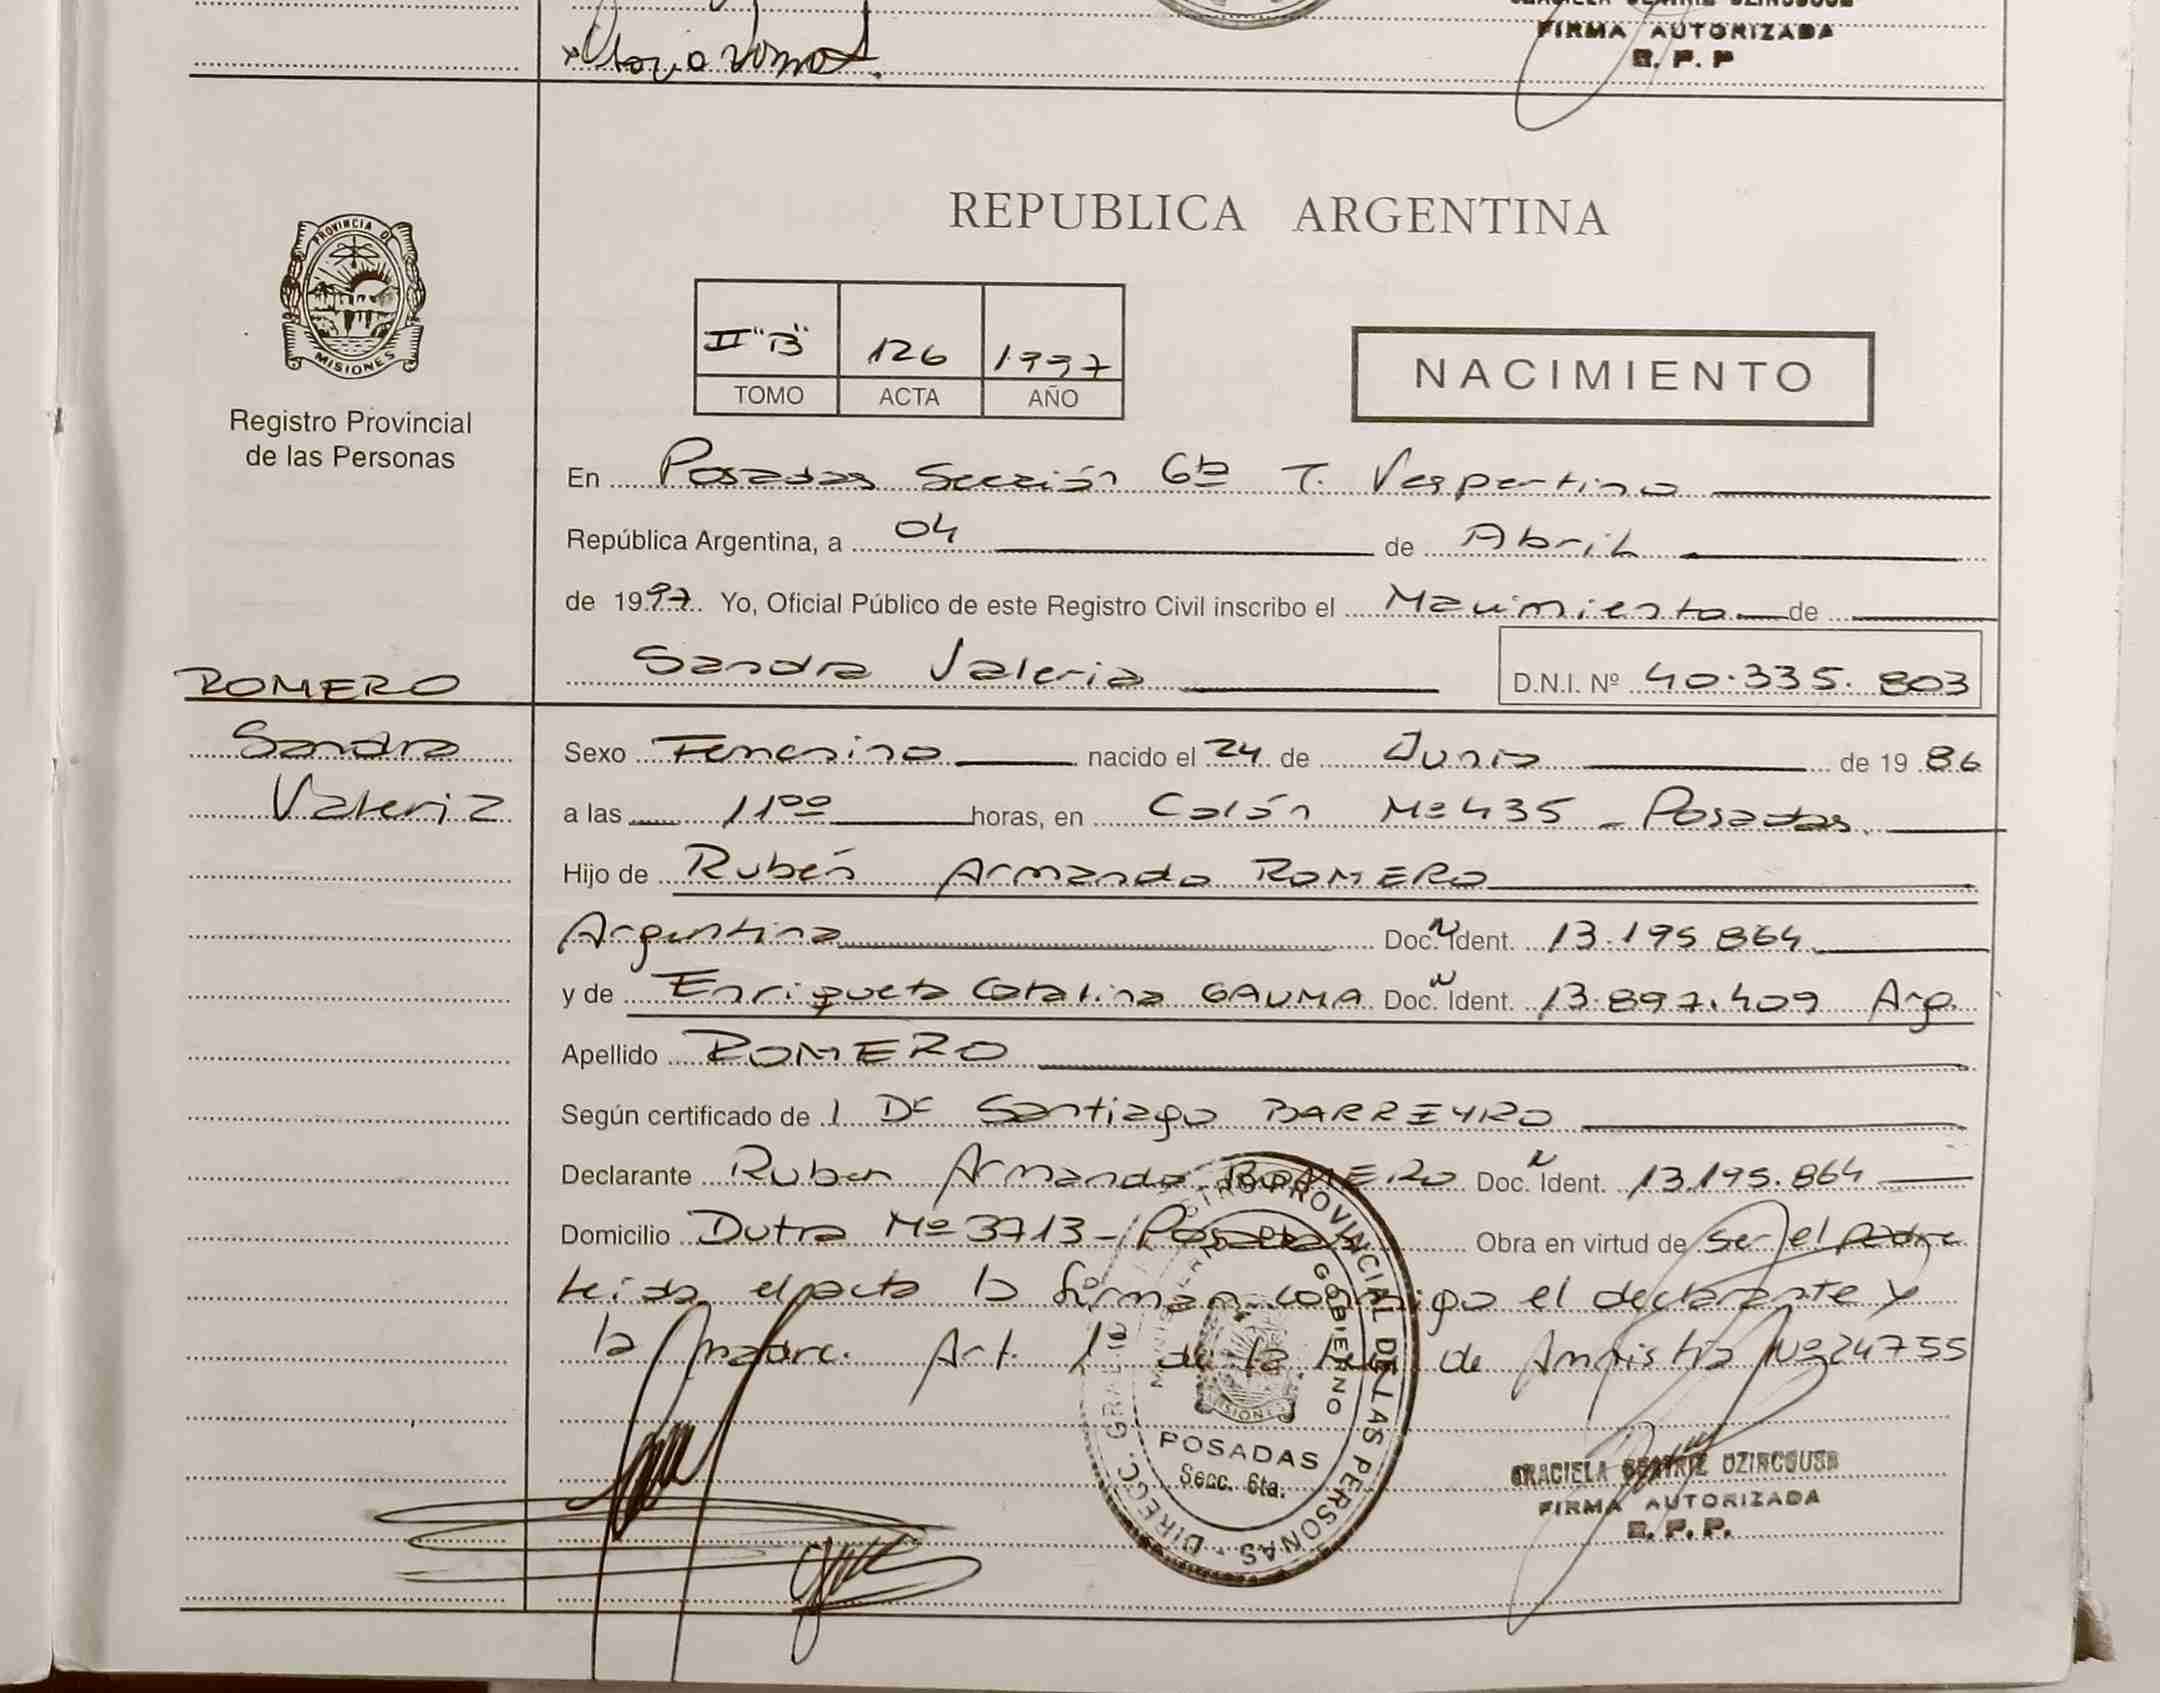 FIRMA AUTORIZADA
R. P. P
PROVINCIA DE
MISIONES
Registro Provincial
de las Personas
REPUBLICA ARGENTINA
II "B" 126 1997
TOMO ACTA AÑO
NACIMIENTO
En Posadas Sección 6ta T. Vespertino
República Argentina, a 04 de Abril
de 1997 Yo, Oficial Público de este Registro Civil inscribo el Nacimiento de
Sandra Valeria D.N.I. Nº 40.335.803
ROMERO
Sandra
Valeria
Sexo Femenino nacido el 24 de Junio de 19 86
a las 1100 horas, en Colón Nº 435 - Posadas.
Hijo de Rubén Armando ROMERO
Argentina Doc. N Ident. 13.195.864
y de Enriqueta Catalina GAUNA Doc. N Ident. 13.897.409 Arg.
Apellido ROMERO
Según certificado de l Dr Santiago BARREYRO
Declarante Ruben Armando ROMERO Doc. N Ident. 13.195.864
Domicilio Dutra Nº 3713 - Posadas Obra en virtud de ser el padre
leida el acta la firman conmigo el declarante y
la madre. Art. 1º de la Ley de Amnistia Nº 24755
POSADAS
Secc. 6ta.
GRACIELA BEATRIZ
FIRMA AUTORIZADA
R. P. P.